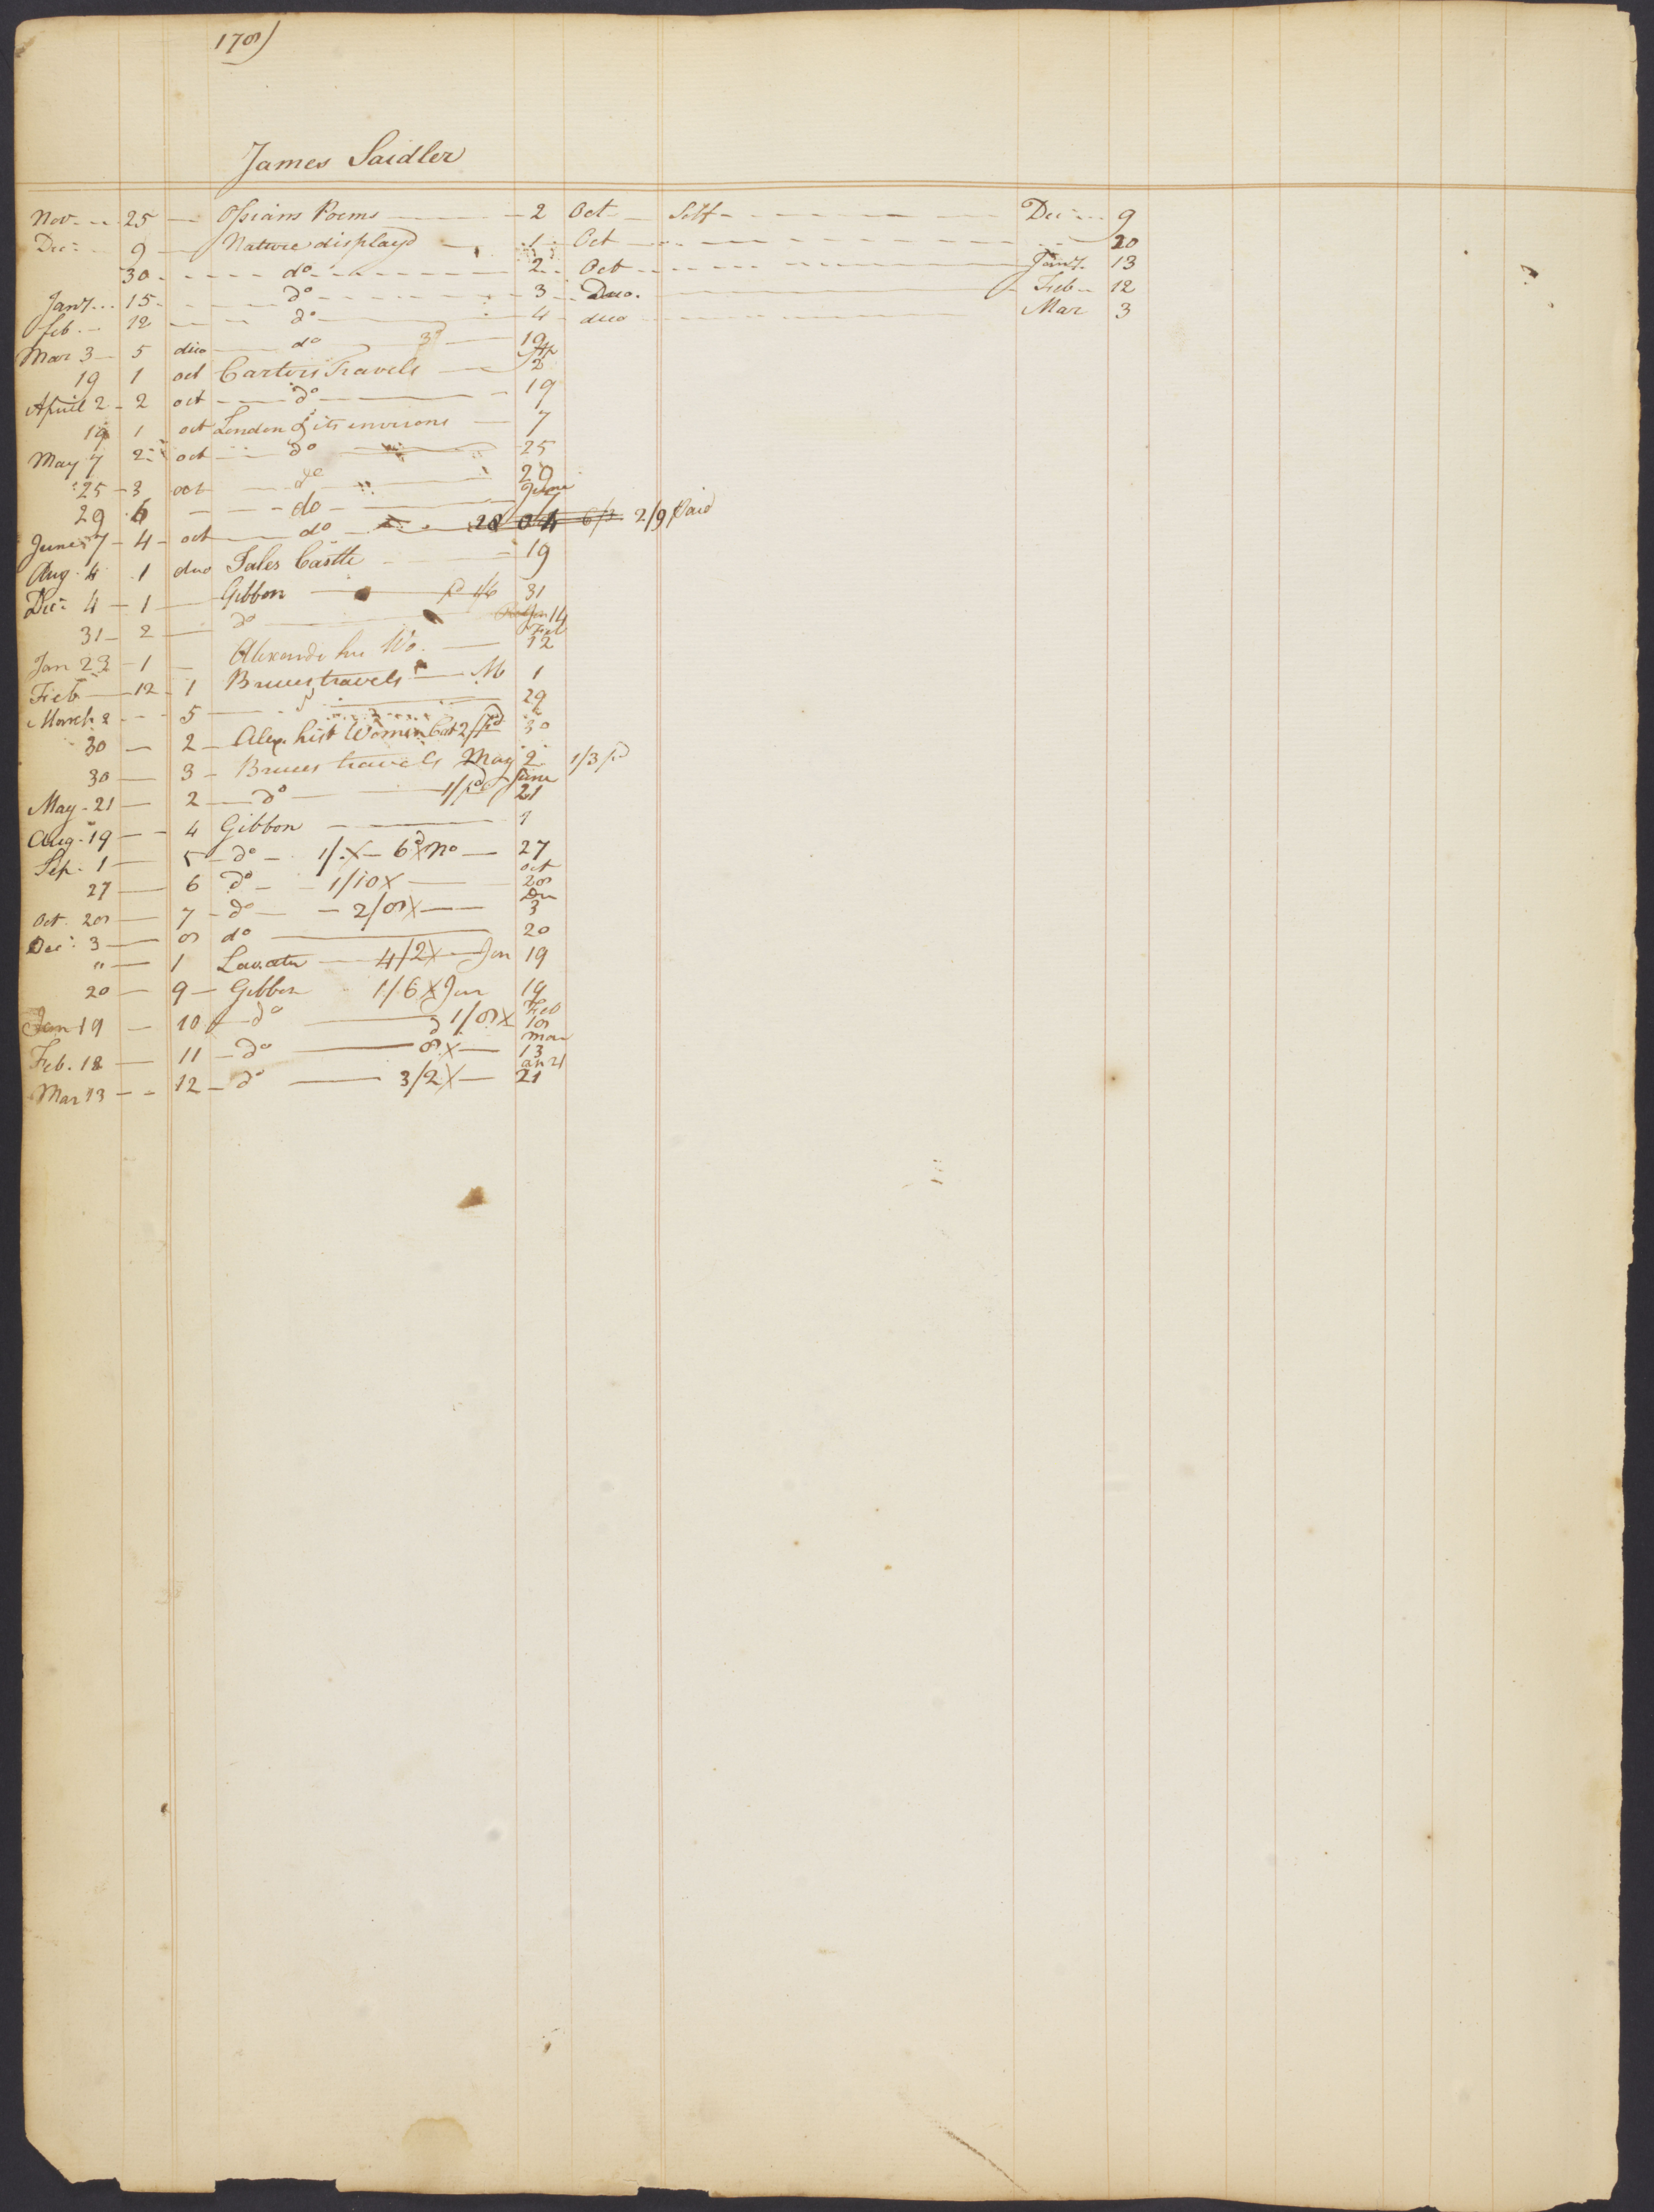 178)
James Saidler
Nov. 25 — Ossians Poems — 2 Oct — Self — Dec. 9
Dec. 9 — Nature displayd — 1 Oct — 20
30 — do — 2 Oct — Jany. 13
Jany. 15 — do — 3 Duo. — Feb. 12
feb. 12 — do — 4 duo — Mar 3
Mar 3 — 5 duo — do — 19
19 1 oct Carters Travels — Ap 2
Aprill 2 — 2 oct — do — 19
19 1 oct London & its environs — 7
May 7 2 oct — do — 25
25 — 3 oct — do — 29
29 6 — do — June 7
June 7 — 4 — oct — do — 2/9 Paid
Aug. 4 1 duo Tales Castle — 19
Dec. 4 — 1 — Gibbon — 31
31 — 2 — do — Jan 14
Jan 23 — 1 — Alexande his Wo. — Feb 12
Feb — 12 1 Bruces travels — M 1
March 2 — 5 — 29
30 — 2 — Alex. hist Women — 30
30 — 3 — Bruces travels May 2 1/3 pd
May 21 — 2 — do — 1/pd June 21
Aug. 19 — 4 Gibbon — 1
Sep. 1 — 5 — do — 1/. X — 6d X no — 27
27 — 6 do — 1/10 X — oct 28
Oct. 28 — 7 — do — 2/8 X — De 3
Dec. 3 — 8 do — 20
" — 1 Lavater — 4/2 X — Jan 19
20 — 9 — Gibbon 1/6 X Jan 19
Jan 19 — 10 — do — 1/8 X Feb 18
Feb. 18 — 11 — do — 8 X — mar 13
Mar 13 — 12 — do — 3/2 X — 21